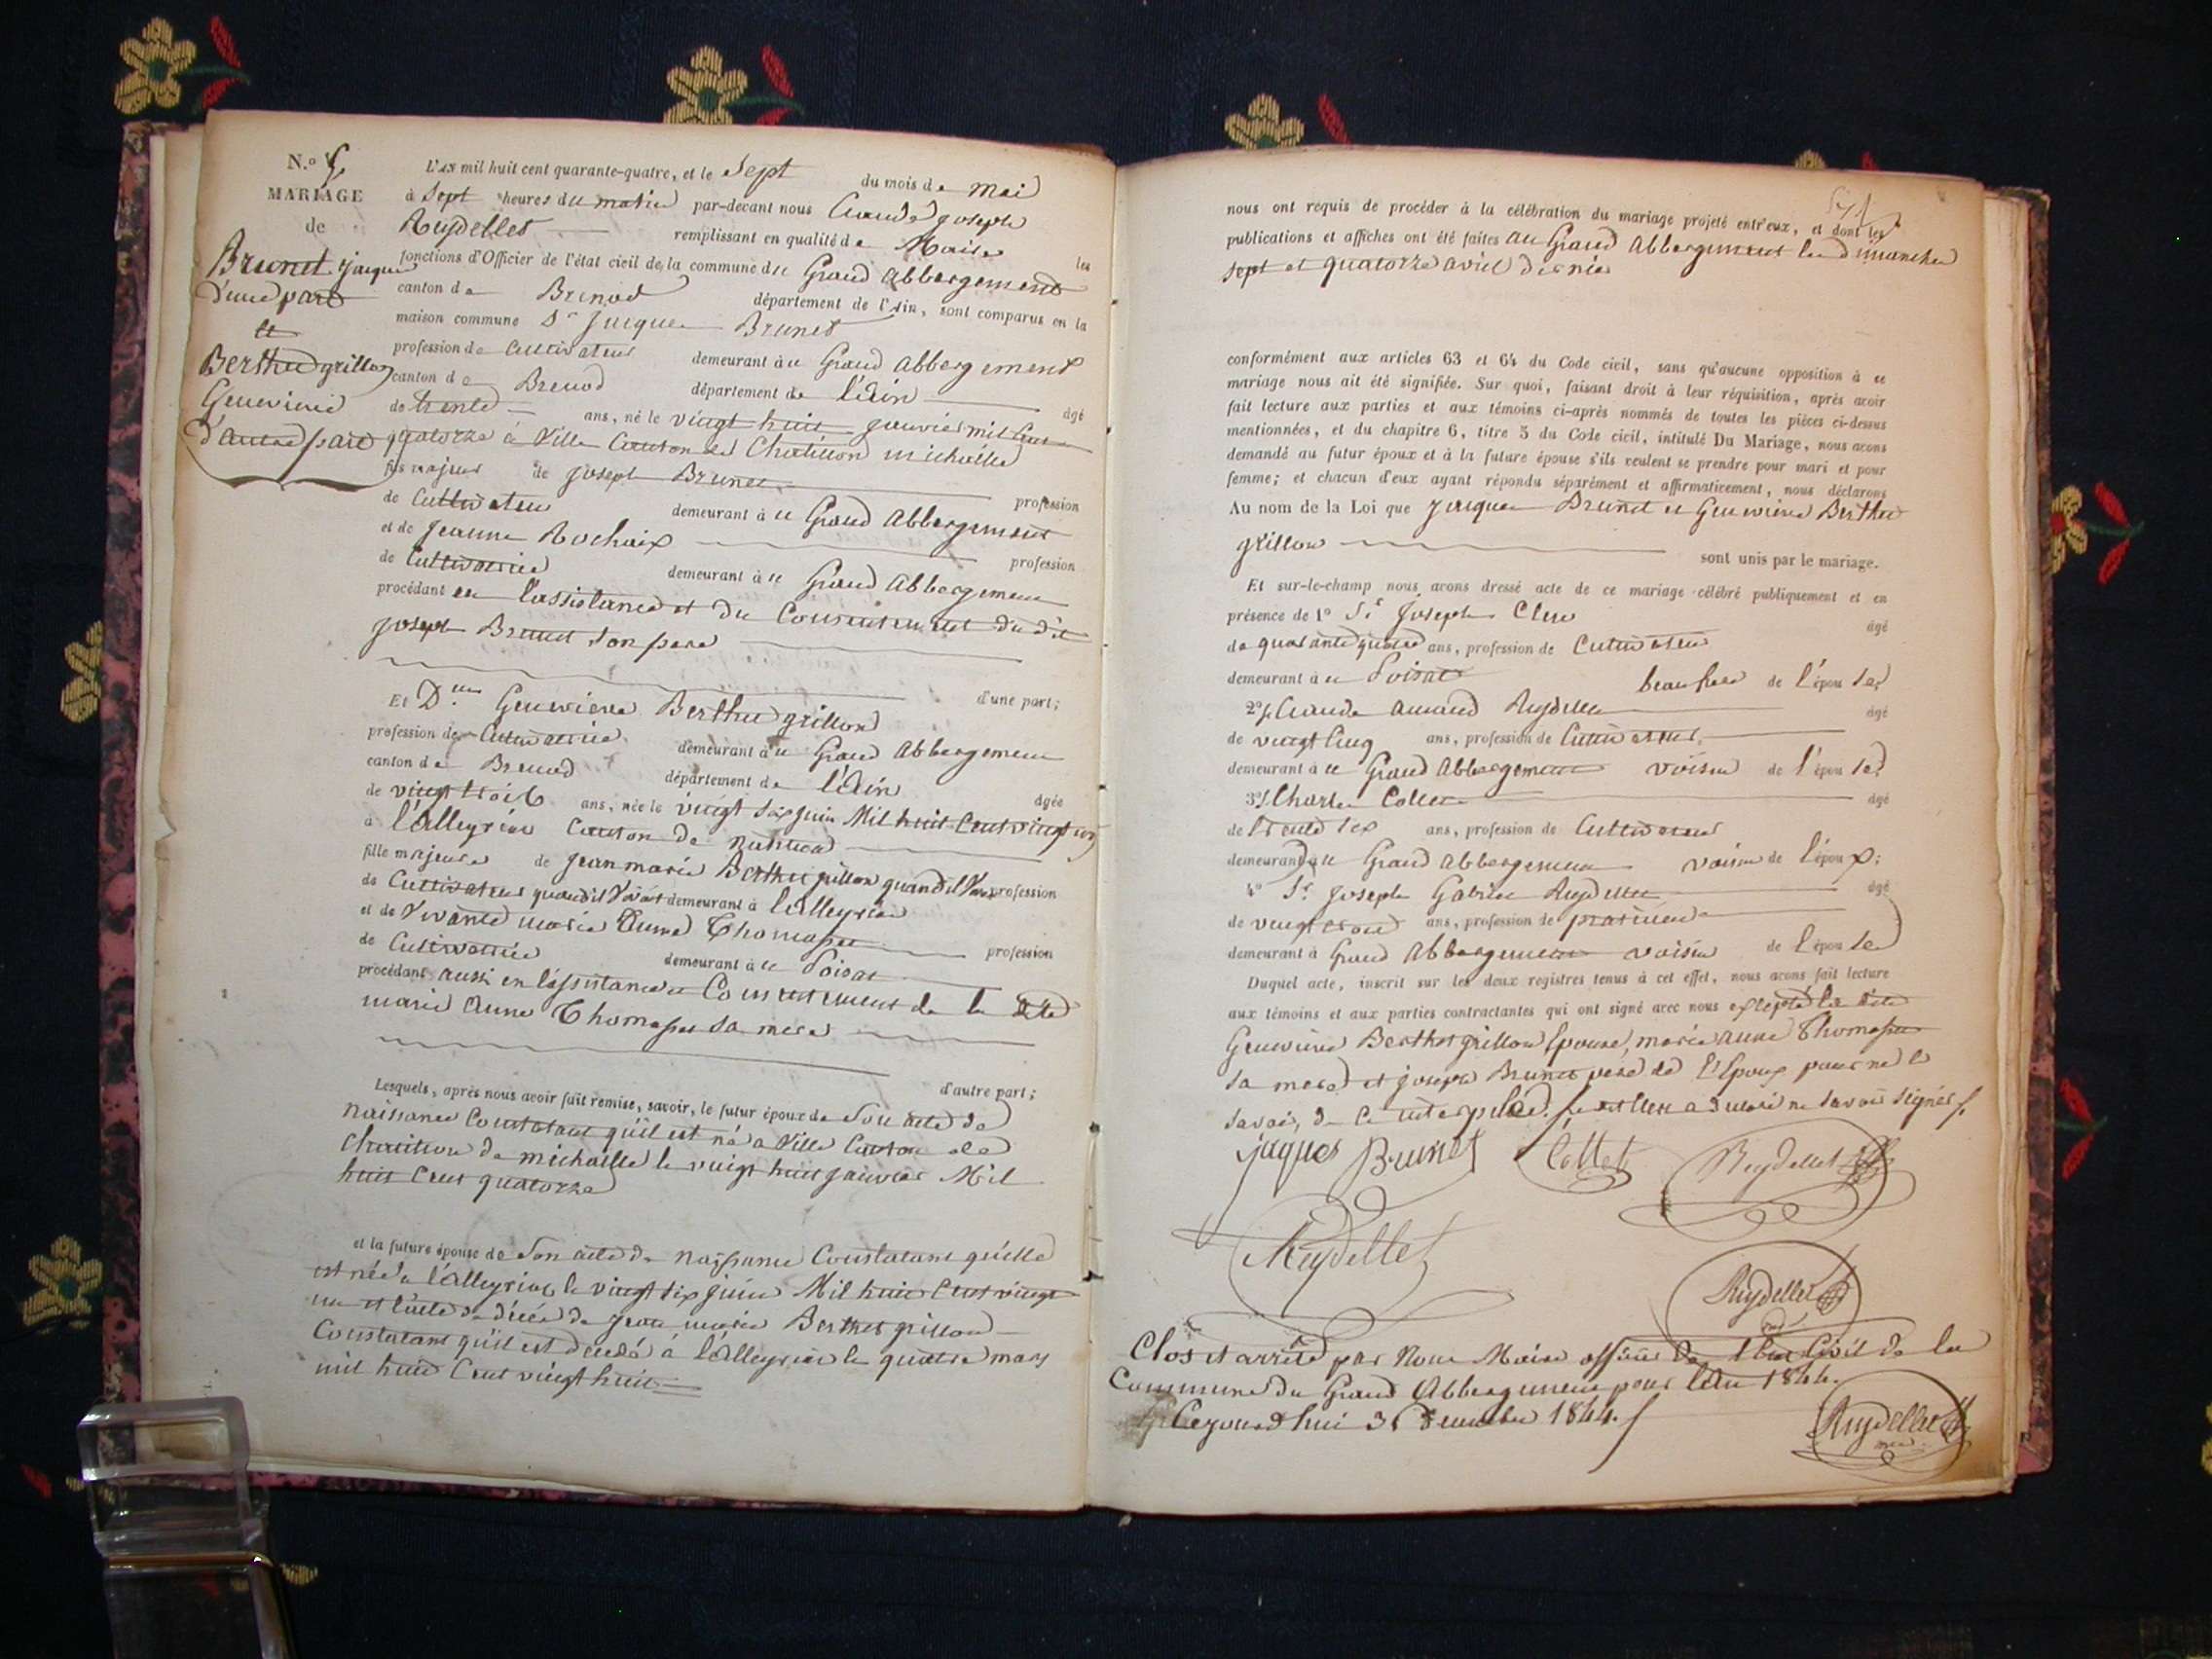 N.º 5
MARIAGE
de
Brunet Jacques
d'une part
et
Berthet grillon
Genevieve
d'autre part
L'AN mil huit cent quarante-quatre, et le Sept du mois de mai
à Sept heures du matin par-devant nous Claude Joseph
Reydellet remplissant en qualité de Maire les
fonctions d'Officier de l'état civil de la commune du Grand Abbergement
canton de Brenod département de l'Ain, sont comparus en la
maison commune Sr Jacques Brunet
profession de Cultivateur demeurant à u Grand Abbergement
canton de Brenod département de l'Ain âgé
de trente ans, né le vingt huit janvier mil huit cent
quatorze à Ville Canton de Chatillon michaille
fils majeur de Joseph Brunet profession
de Cultivateur demeurant à u Grand Abbergement
et de Jeanne Rochaix profession
de Cultivatrice demeurant à u Grand Abbergement
procédant en l'assistance et du Consentement du dit
Joseph Brunet son pere
d'une part;
Et D.lle Genevieve Berthet grillon
profession de Cultivatrice demeurant à u Grand Abbergement
canton de Brenod département de l'Ain âgée
de vingt trois ans, née le vingt six juin Mil huit Cent vingt un
à l'alleyriat Canton de Nantua
fille majeure de Jean marie Berthet grillon quand il vivait profession
de Cultivateur quand il vivait demeurant à l'alleyriat
et de Vivante marie Anne Thomasset profession
de Cultivatrice demeurant à u Poizat
procédant aussi en l'assistance et Consentement de la dite
marie Anne Thomasset sa mere
d'autre part;
Lesquels, après nous avoir fait remise, savoir, le futur époux de Son acte de
naissance Constatant qu'il est né a Ville Canton de
Chatillon de michaille le vingt huit janvier Mil
huit Cent quatorze
et la future épouse de Son acte de naissance Constatant qu'elle
est née à l'alleyriat le vingt six juin Mil huit Cent vingt
un et l'acte de décés de Jean marie Berthet grillon
Constatant qu'il est decédé à l'alleyriat le quatre mars
mil huit Cent vingt huit
nous ont requis de procéder à la célébration du mariage projeté entr'eux, et dont les
publications et affiches ont été faites au Grand Abbergement les dimanches
sept et quatorze avril dernier
conformément aux articles 63 et 64 du Code civil, sans qu'aucune opposition à ce
mariage nous ait été signifiée. Sur quoi, faisant droit à leur réquisition, après avoir
fait lecture aux parties et aux témoins ci-après nommés de toutes les pièces ci-dessus
mentionnées, et du chapitre 6, titre 5 du Code civil, intitulé Du Mariage, nous avons
demandé au futur époux et à la future épouse s'ils veulent se prendre pour mari et pour
femme; et chacun d'eux ayant répondu séparément et affirmativement, nous déclarons
Au nom de la Loi que Jacques Brunet et Genevieve Berthet
grillon sont unis par le mariage.
Et sur-le-champ nous avons dressé acte de ce mariage célébré publiquement et en
présence de 1º Sr Joseph Clerc âgé
de quarante quatre ans, profession de Cultivateur
demeurant à u Poizat beaufrere de l'épou se;
2º Sr Claude Amand Reydellet âgé
de vingt cinq ans, profession de Cultivateur
demeurant à u Grand Abbergement voisin de l'épou se;
3º Sr Charles Collet âgé
de trente six ans, profession de Cultivateur
demeurant à u Grand Abbergement voisin de l'épou x;
4º Sr Joseph Gabriel Reydellet âgé
de vingt trois ans, profession de praticien
demeurant à Grand Abbergement voisin de l'épou se
Duquel acte, inscrit sur les deux registres tenus à cet effet, nous avons fait lecture
aux témoins et aux parties contractantes qui ont signé avec nous excepté la dite
Genevieve Berthet grillon épouse, marie Anne Thomasset
sa mere et joseph Brunet pere de l'Epoux pour ne le
savoir, de ce interpelés. Le dit Clerc a declaré ne savoir signer
jaques Brunet Collet Reydellet
Reydellet
Reydellet
Clos et arrêté par Nous Maire officier de l'Etat Civil de la
Commune du Grand Abbergement pour l'An 1844.
Cejourd'hui 31 decembre 1844.
Reydellet